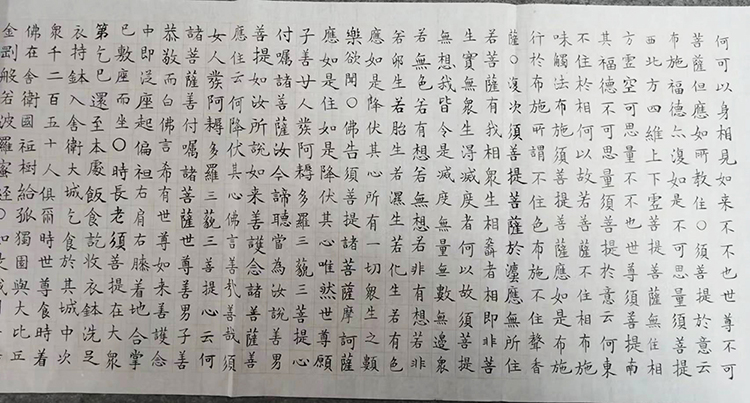 金剛般若波羅蜜经〇如是我
佛在舍衛國祗樹給孤獨園與大比丘
衆千二百五十人俱爾時世尊食時着
衣持鉢入舍衛大城乞食於其城中次
第乞已還至本處飯食訖收衣鉢洗足
已敷座而坐〇時長老須菩提在大衆
中即從座起偏袒右肩右膝着地合掌
恭敬而白佛言希有世尊如来善護念
諸菩薩善付嘱諸菩薩世尊善男子善
女人發阿耨多羅三藐三菩提心云何
應住云何降伏其心佛言善哉善哉須
菩提如汝所説如来善護念諸菩薩善
付嘱諸菩薩汝今諦聽當為汝説善男
子善女人發阿耨多羅三藐三菩提心
應如是住如是降伏其心唯然世尊願
樂欲聞〇佛告須菩提諸菩薩摩訶薩
應如是降伏其心所有一切衆生之類
若卵生若胎生若濕生若化生若有色
若無色若有想若無想若非有想若非
無想我皆令是滅度無量無數無邊衆
生實無衆生得滅度者何以故須菩提
若菩薩有我相衆生相壽者相即非菩
薩〇復次須菩提菩薩於灋應無所住
行於布施所謂不住色布施不住聲香
味觸法布施須菩提菩薩應如是布施
不住於相何以故若菩薩不住相布施
其福德不可思量須菩提於意云何東
方虛空可思量不不也世尊須菩提南
西北方四維上下虛菩提菩薩無住相
布施福德亦復如是不可思量須菩提
菩薩但應如所教住〇須菩提於意云
何可以身相見如来不不也世尊不可